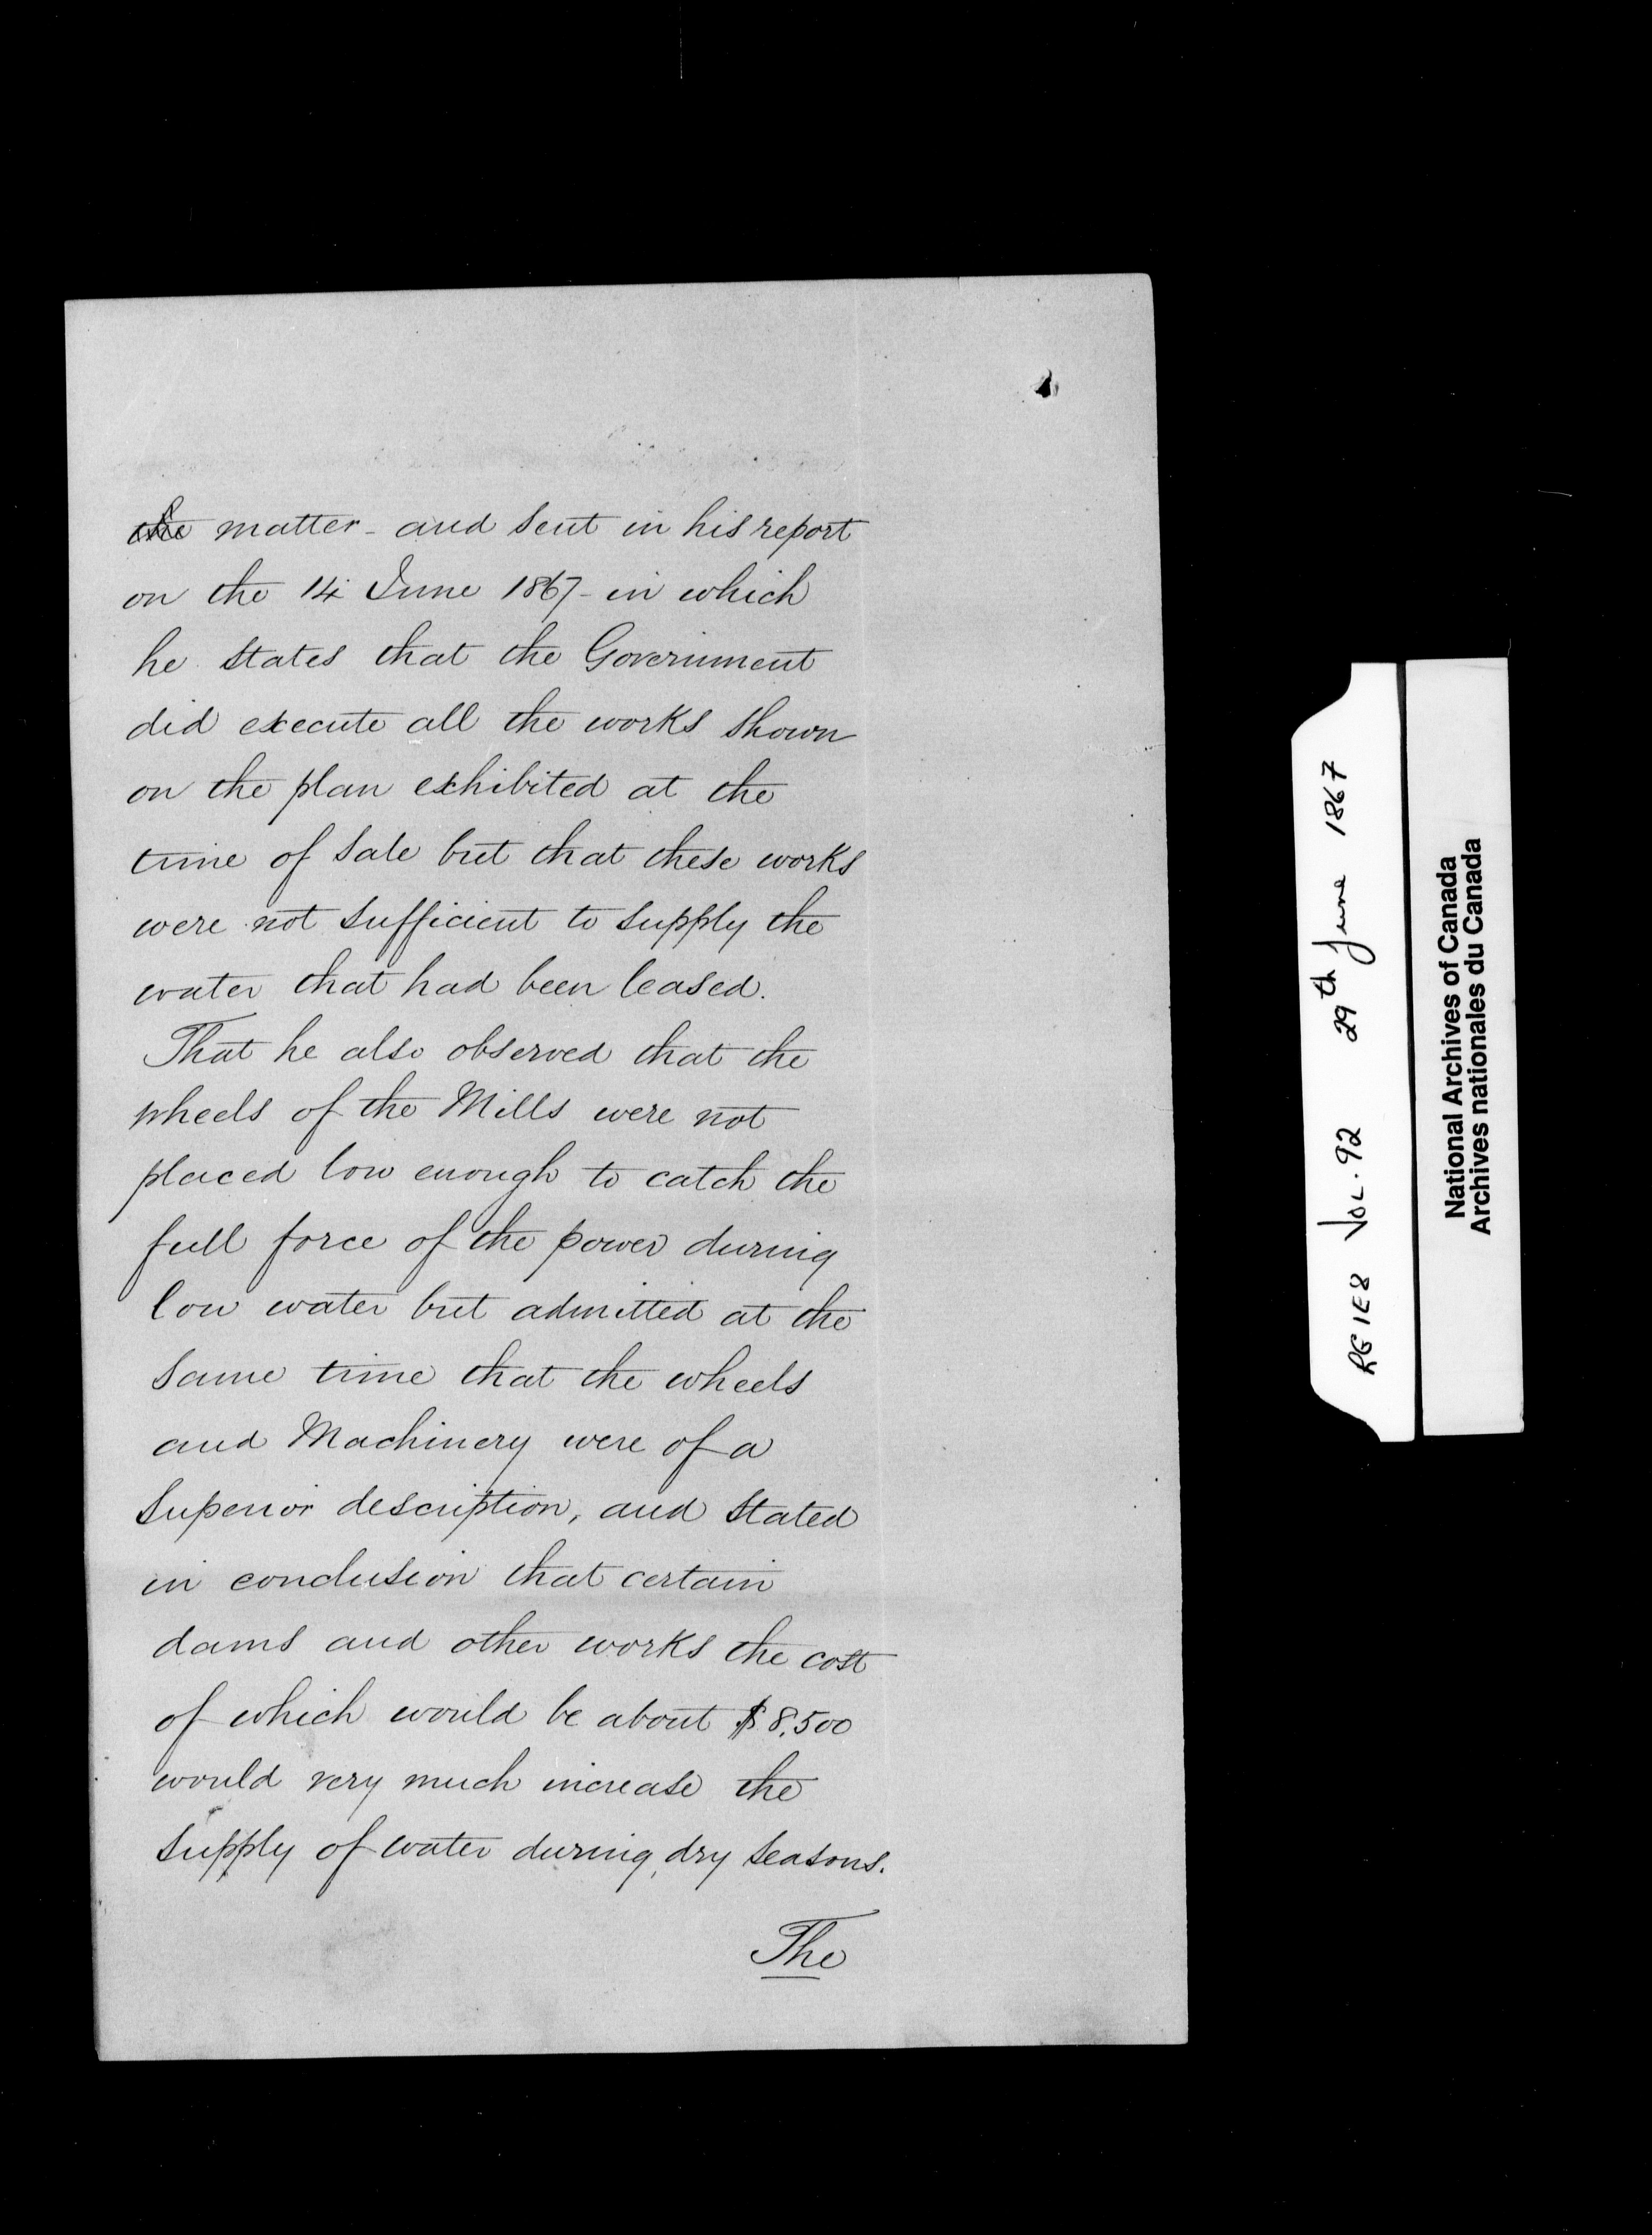 the matter - and sent in his report
on the 14 June 1867 - in which
he states that the Government
did execute all the works shown
on the plan exhibited at the
time of sale but that these works
were not sufficient to supply the
water that had been leased.
That he also observed that the
wheels of the Mills were not
placed low enough to catch the
full force of the power during
low water but admitted at the
same time that the wheels
and Machinery were of a
superior description, and stated
in conclusion that certain
dams and other works the cost
of which would be about $8,500
would very much increase the
supply of water during dry seasons.
The
RG 1E8 VOL. 92 29th June 1867
National Archives of Canada
Archives nationales du Canada